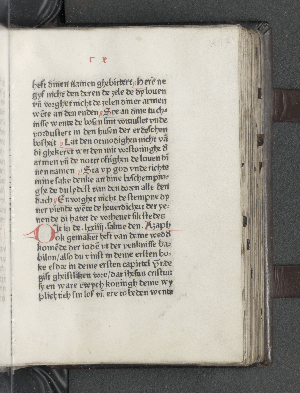 heft dinen namen ghebittert Here ne
gif nicht den deren de zele de dy louen
vn vorghet nicht der zelen diner armen
wente an den enden See an dine tuch
nisse wente de bosen sint voruullet vnde
vorduftert in den husen der erdeschen
bosheit Lat den otmodighen nicht wer
di ghekeret werden mit vorstoringhe de
armen vn de nottroftighen de louen di
nen namen Sta vp god vnde richte
mine sake denke an dine beschempin
ghe de du lydest van den doren alle den
dach Envorghet nicht de stempne dy
ner viende wente de houerdicheit der ye
nen de di hatet de vothenet sik stedes
Dit is de lxxiiij salme den Azaph
ook gemaket heft van der wed
komede der ioden vt der venknisse ba
bilon also du vinst in deme ersten bo
ke esdre in deme ersten capittel vnde
gift gheistliken vore dat ihesus cristus
sy en ware ewych koningh deme wy
plichtich sin lof vn ere to beden wente